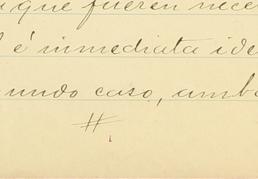 que fueren nece
é inmediata ide
undo caso, amb
#